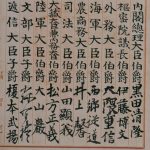 內閣總理大臣伯爵黑田清隆
樞密院議長伯爵伊藤博文
外務大臣伯爵大隈重信
海軍大臣伯爵西鄉從道
農商務大臣伯爵井上馨
司法大臣伯爵山田顯義
大藏大臣兼內務大臣伯爵松方正義
陸軍大臣伯爵大山巖
文部大臣子爵森有禮
遞信大臣子爵榎本武揚